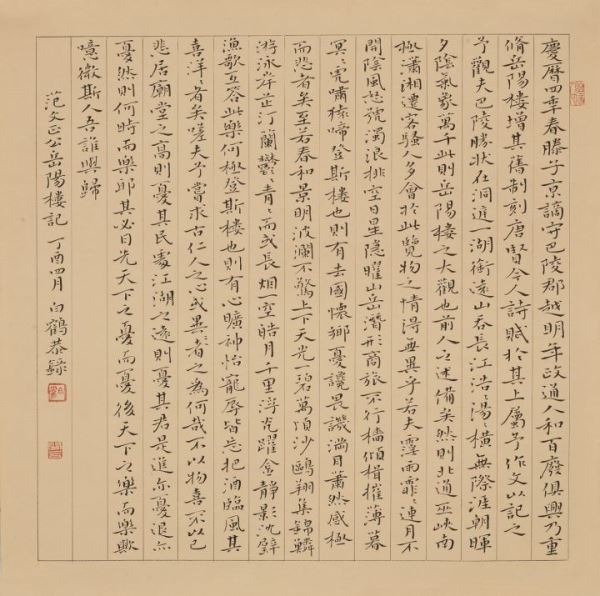 慶曆四年春滕子京謫守巴陵郡越明年政通人和百廢俱興乃重
脩岳陽樓增其舊制刻唐賢今人詩賦於其上屬予作文以記之
予觀夫巴陵勝狀在洞庭一湖銜遠山吞長江浩〻湯〻橫無際涯朝暉
夕陰氣象萬千此則岳陽樓之大觀也前人之述備矣然則北通巫峽南
極瀟湘遷客騷人多會於此覽物之情得無異乎若夫霪雨霏〻連月不
開陰風怒號濁浪排空日星隱曜山岳潛形商旅不行檣傾楫摧薄暮
冥〻虎嘯猿啼登斯樓也則有去國懷鄉憂讒畏譏滿目蕭然感極
而悲者矣至若春和景明波瀾不驚上下天光一碧萬頃沙鷗翔集錦鱗
游泳岸芷汀蘭鬱〻青〻而或長烟一空皓月千里浮光躍金靜影沈璧
漁歌互答此樂何極登斯樓也則有心曠神怡寵辱皆忘把酒臨風其
喜洋〻者矣嗟夫予嘗求古仁人之心或異二者之為何哉不以物喜不以己
悲居廟堂之高則憂其民處江湖之遠則憂其君是進亦憂退亦
憂然則何時而樂邪其必曰先天下之憂而憂後天下之樂而樂歟
噫微斯人吾誰與歸
范文正公岳陽樓記 丁酉四月 白鶴恭錄